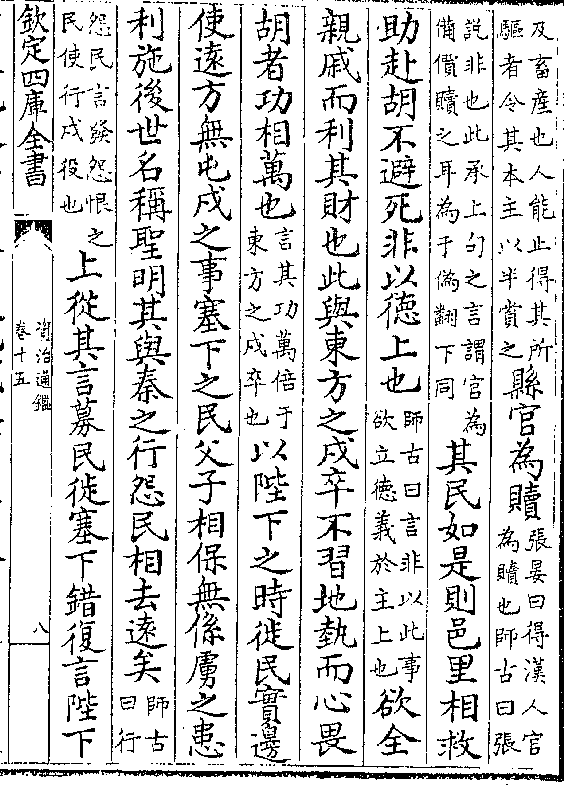 及畜産也人能止得其所
驅者令其本主以半賞之
縣官為贖
張晏曰得漢人官
為贖也師古曰張
說非也此承上句之言謂官為
備價贖之耳為于偽翻下同
其民如是則邑里相救
助赴胡不避死非以德上也
師古曰言非以此事
欲立德義於主上也
欲全
親戚而利其財也此與東方之戍卒不習地埶而心畏
胡者功相萬也
言其功萬倍于
東方之戍卒也
以陛下之時徙民實邊
使遠方無屯戍之事塞下之民父子相保無係虜之患
利施後世名稱聖明其與秦之行怨民相去遠矣
師古
曰行
怨民言發怨恨之
民使行戍役也
上從其言募民徙塞下錯復言陛下
欽定四庫全書
資治通鑑
卷十五
八